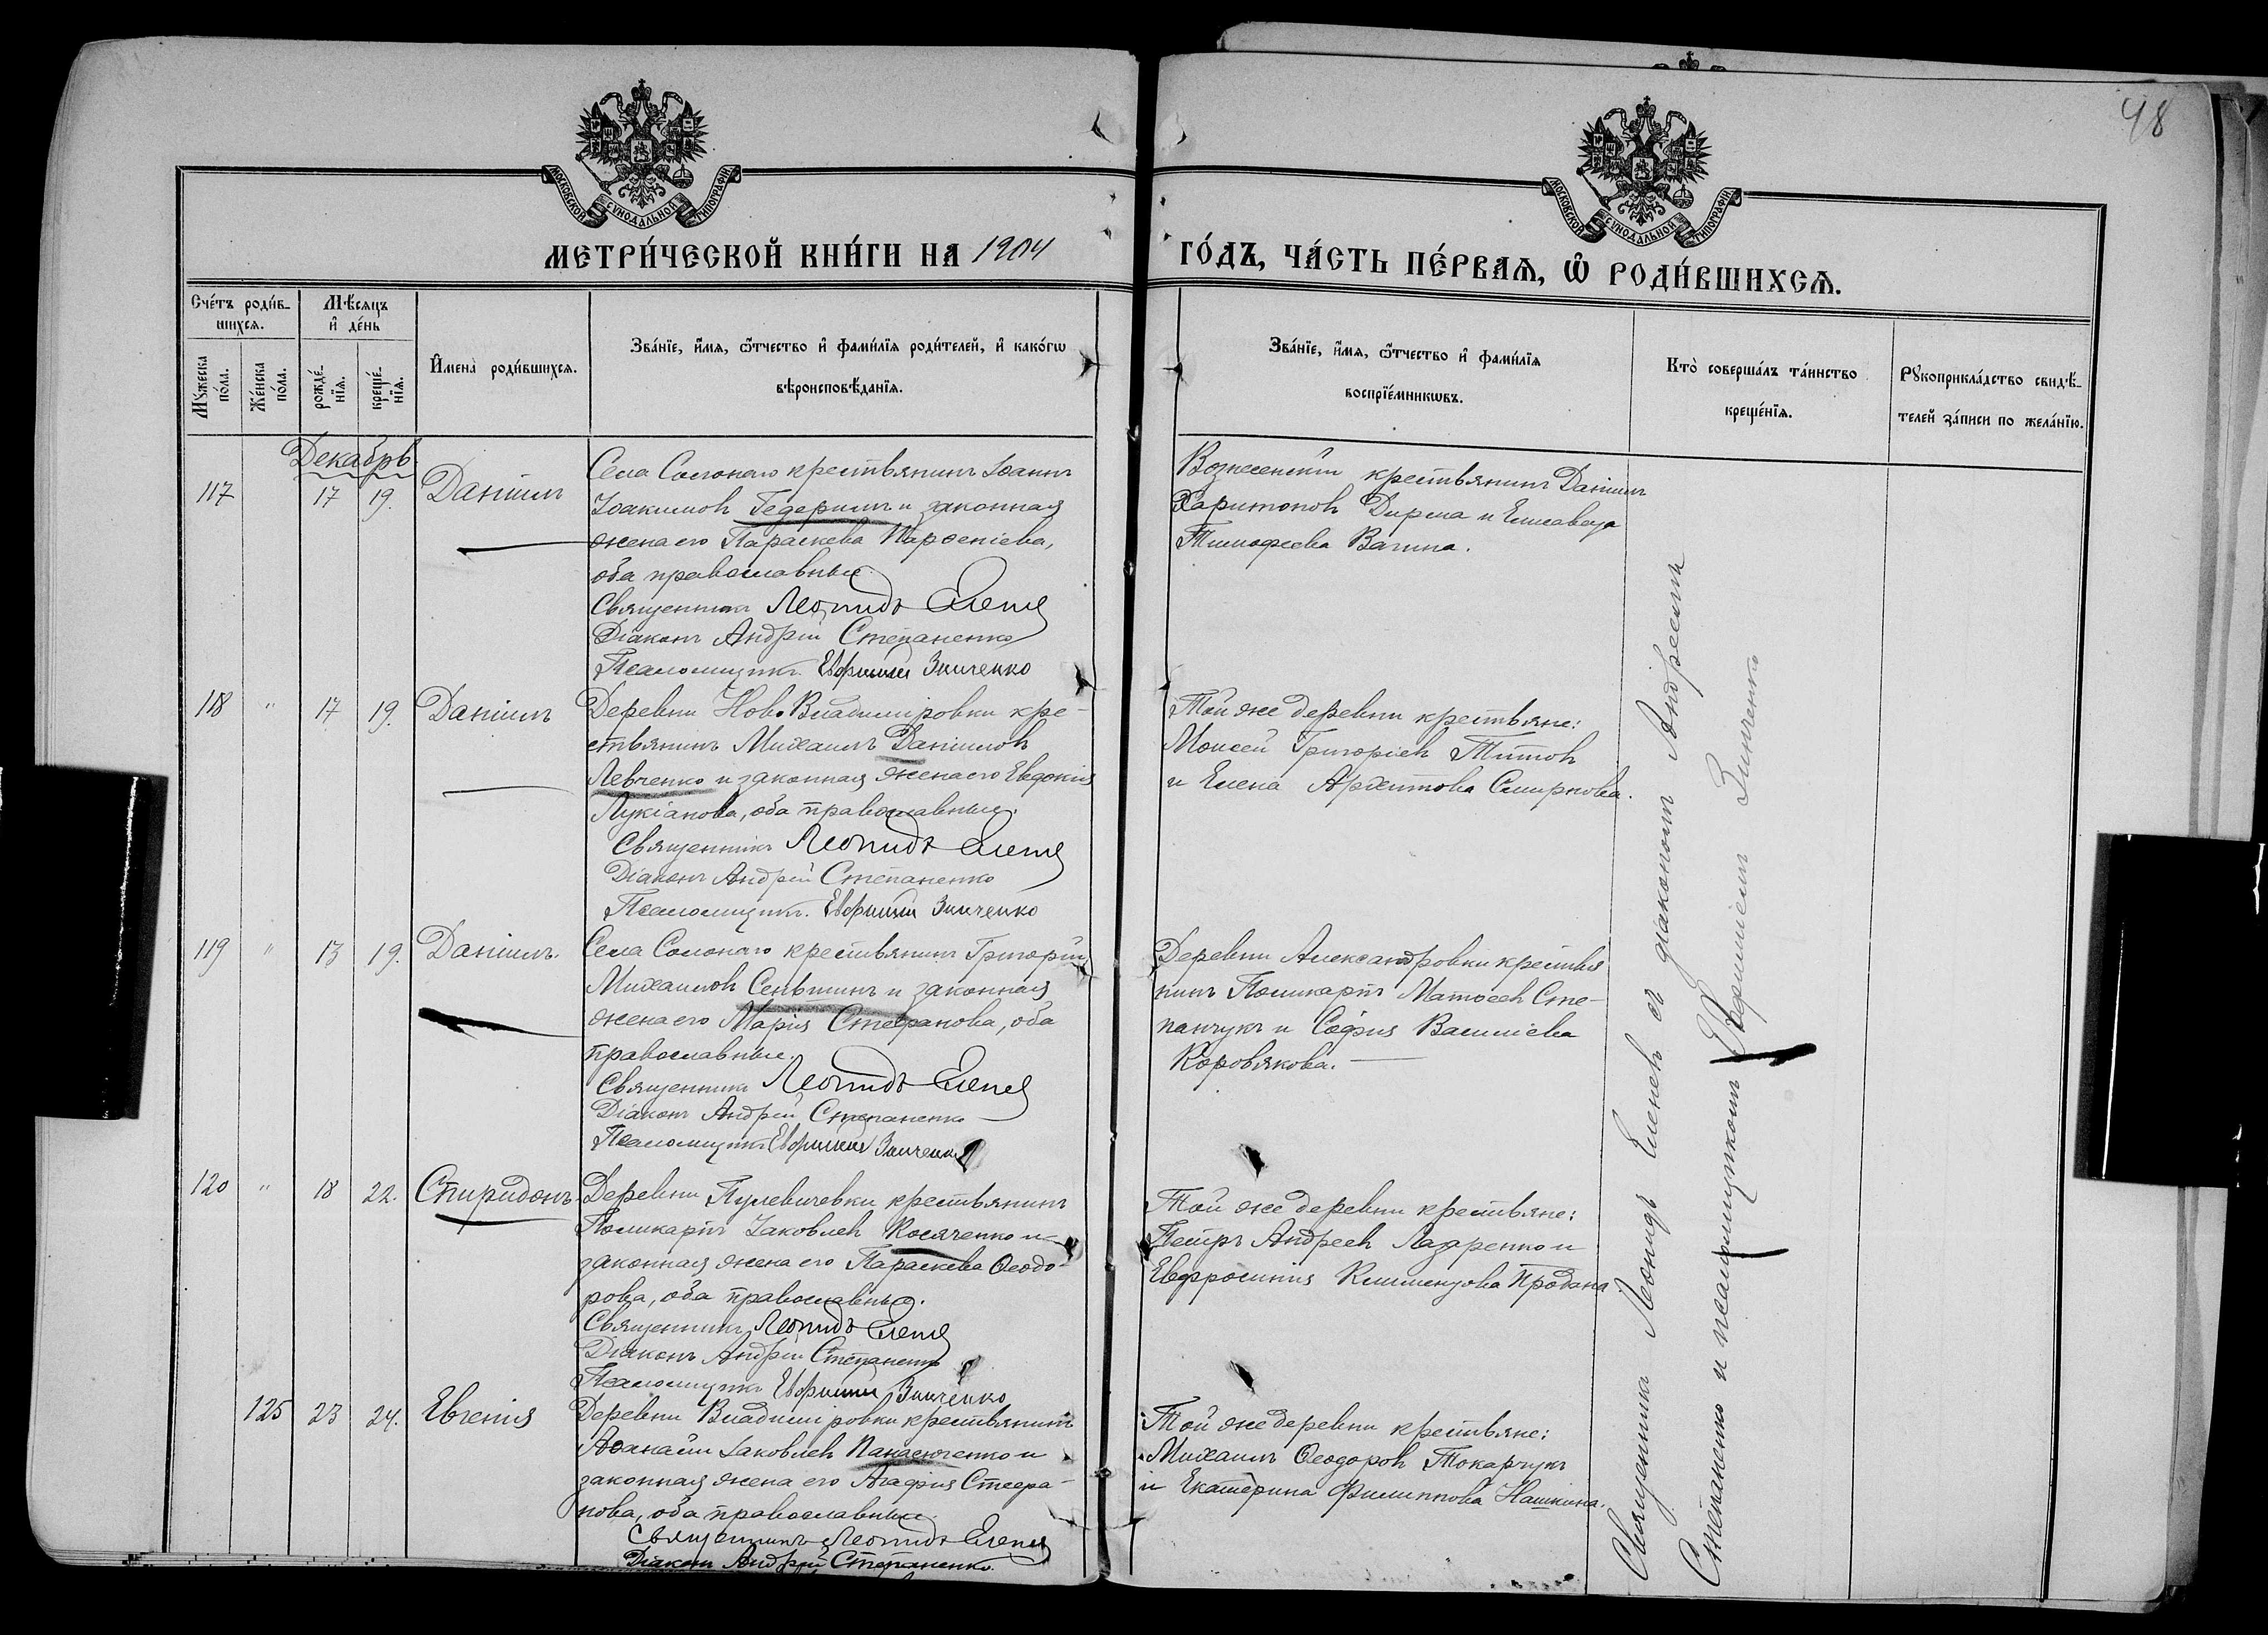 48
МОСКОВСКОЙ СѴНОДАЛЬНОЙ ТИПОГРАФІИ
МОСКОВСКОЙ СѴНОДАЛЬНОЙ ТИПОГРАФІИ
МЕТРИ́ЧЕСКОЙ КНИ́ГИ НА 1904
ГО́ДЪ, ЧА́СТЬ ПЕ́РВАѦ, Ѽ РОДИ́ВШИХСѦ.
Сче́тъ роди́в-
шихсѧ.
Мꙋжеска по́ла.
Же́нска по́ла.
Мѣ́сяцъ
и҆ де́нь
рожде́-
нїѧ.
креще́-
нїѧ.
И҆мена̀ роди́вшихсѧ.
Зва́нїе, и҆́мѧ, ѻ҆́тчество и҆ фами́лїѧ роди́телей, и҆ како́гѡ
вѣроисповѣ́данїѧ.
Зва́нїе, и҆́мѧ, ѻ҆́тчество и҆ фами́лїѧ
воспрїе́мникѡвъ.
Кто̀ соверша́лъ та́инство
креще́нїѧ.
Рꙋкоприкла́дство свидѣ́-
телей за́писи по жела́нїю.
Декабрь
117 17 19. Даніилъ
Села Солонаго крестьянинъ Іоаннъ
Іоакимовъ Гедеримъ и законная
жена его Параскева Парѳеніева,
оба православные.
Священникъ Леонидъ Еленев
Діаконъ Андрей Степаненко
Псаломщикъ Евфимій Зинченко
Вознесенскій крестьянинъ Даніилъ
Харитоновъ Дирма и Елисавета
Тимофеева Вагина.
118 " 17 19. Даніилъ
Деревни Ново Владиміровки кре-
стьянинъ Михаилъ Данииловъ
Левченко и законная жена его Евдокія
Лукіанова, оба православные.
Священникъ Леонидъ Еленев
Діаконъ Андрей Степаненко
Псаломщикъ. Евфимій Зинченко
Той же деревни крестьяне:
Моисей Григоріевъ Титовъ
и Елена Архиппова Смирнова.
119 " 13 19. Даніилъ.
Села Солонаго крестьянинъ Григорій
Михаиловъ Сеньшинъ и законная
жена его Марія Стефанова, оба
православные.
Священникъ Леонидъ Еленев
Діаконъ Андрей Степаненко
Псаломщикъ Евфимій Зинченко
Деревни Александровки крестья
нинъ Поликарпъ Матѳеевъ Сте-
панчукъ и Софія Василіева
Коровякова.
120 " 18 22. Спиридонъ
Деревни Пулевичевки крестьянинъ
Поликарпъ Іаковлевъ Косяченко и
законная жена его Параскева Ѳеодо-
рова, оба православные.
Священникъ Леонидъ Еленев
Діаконъ Андрей Степаненко
Псаломщикъ Евфимій Зинченко
Той же деревни крестьяне:
Петръ Андреевъ Лазаренко и
Евфросинія Климентова Продана
125 23 24. Евгенія
Деревни Владиміровки крестьянинъ
Аѳанасій Іаковлевъ Панасюченко и
законная жена его Агафія Стефа-
нова, оба православные.
Священникъ Леонидъ Еленев
Діаконъ Андрей Степаненко
Той же деревни крестьяне:
Михаилъ Ѳеодоровъ Токарчукъ
и Екатерина Филиппова Нашкина.
Священникъ Леонидъ Еленевъ съ діакономъ Андреемъ
Степаненко и псаломщикомъ Евфиміемъ Зинченко